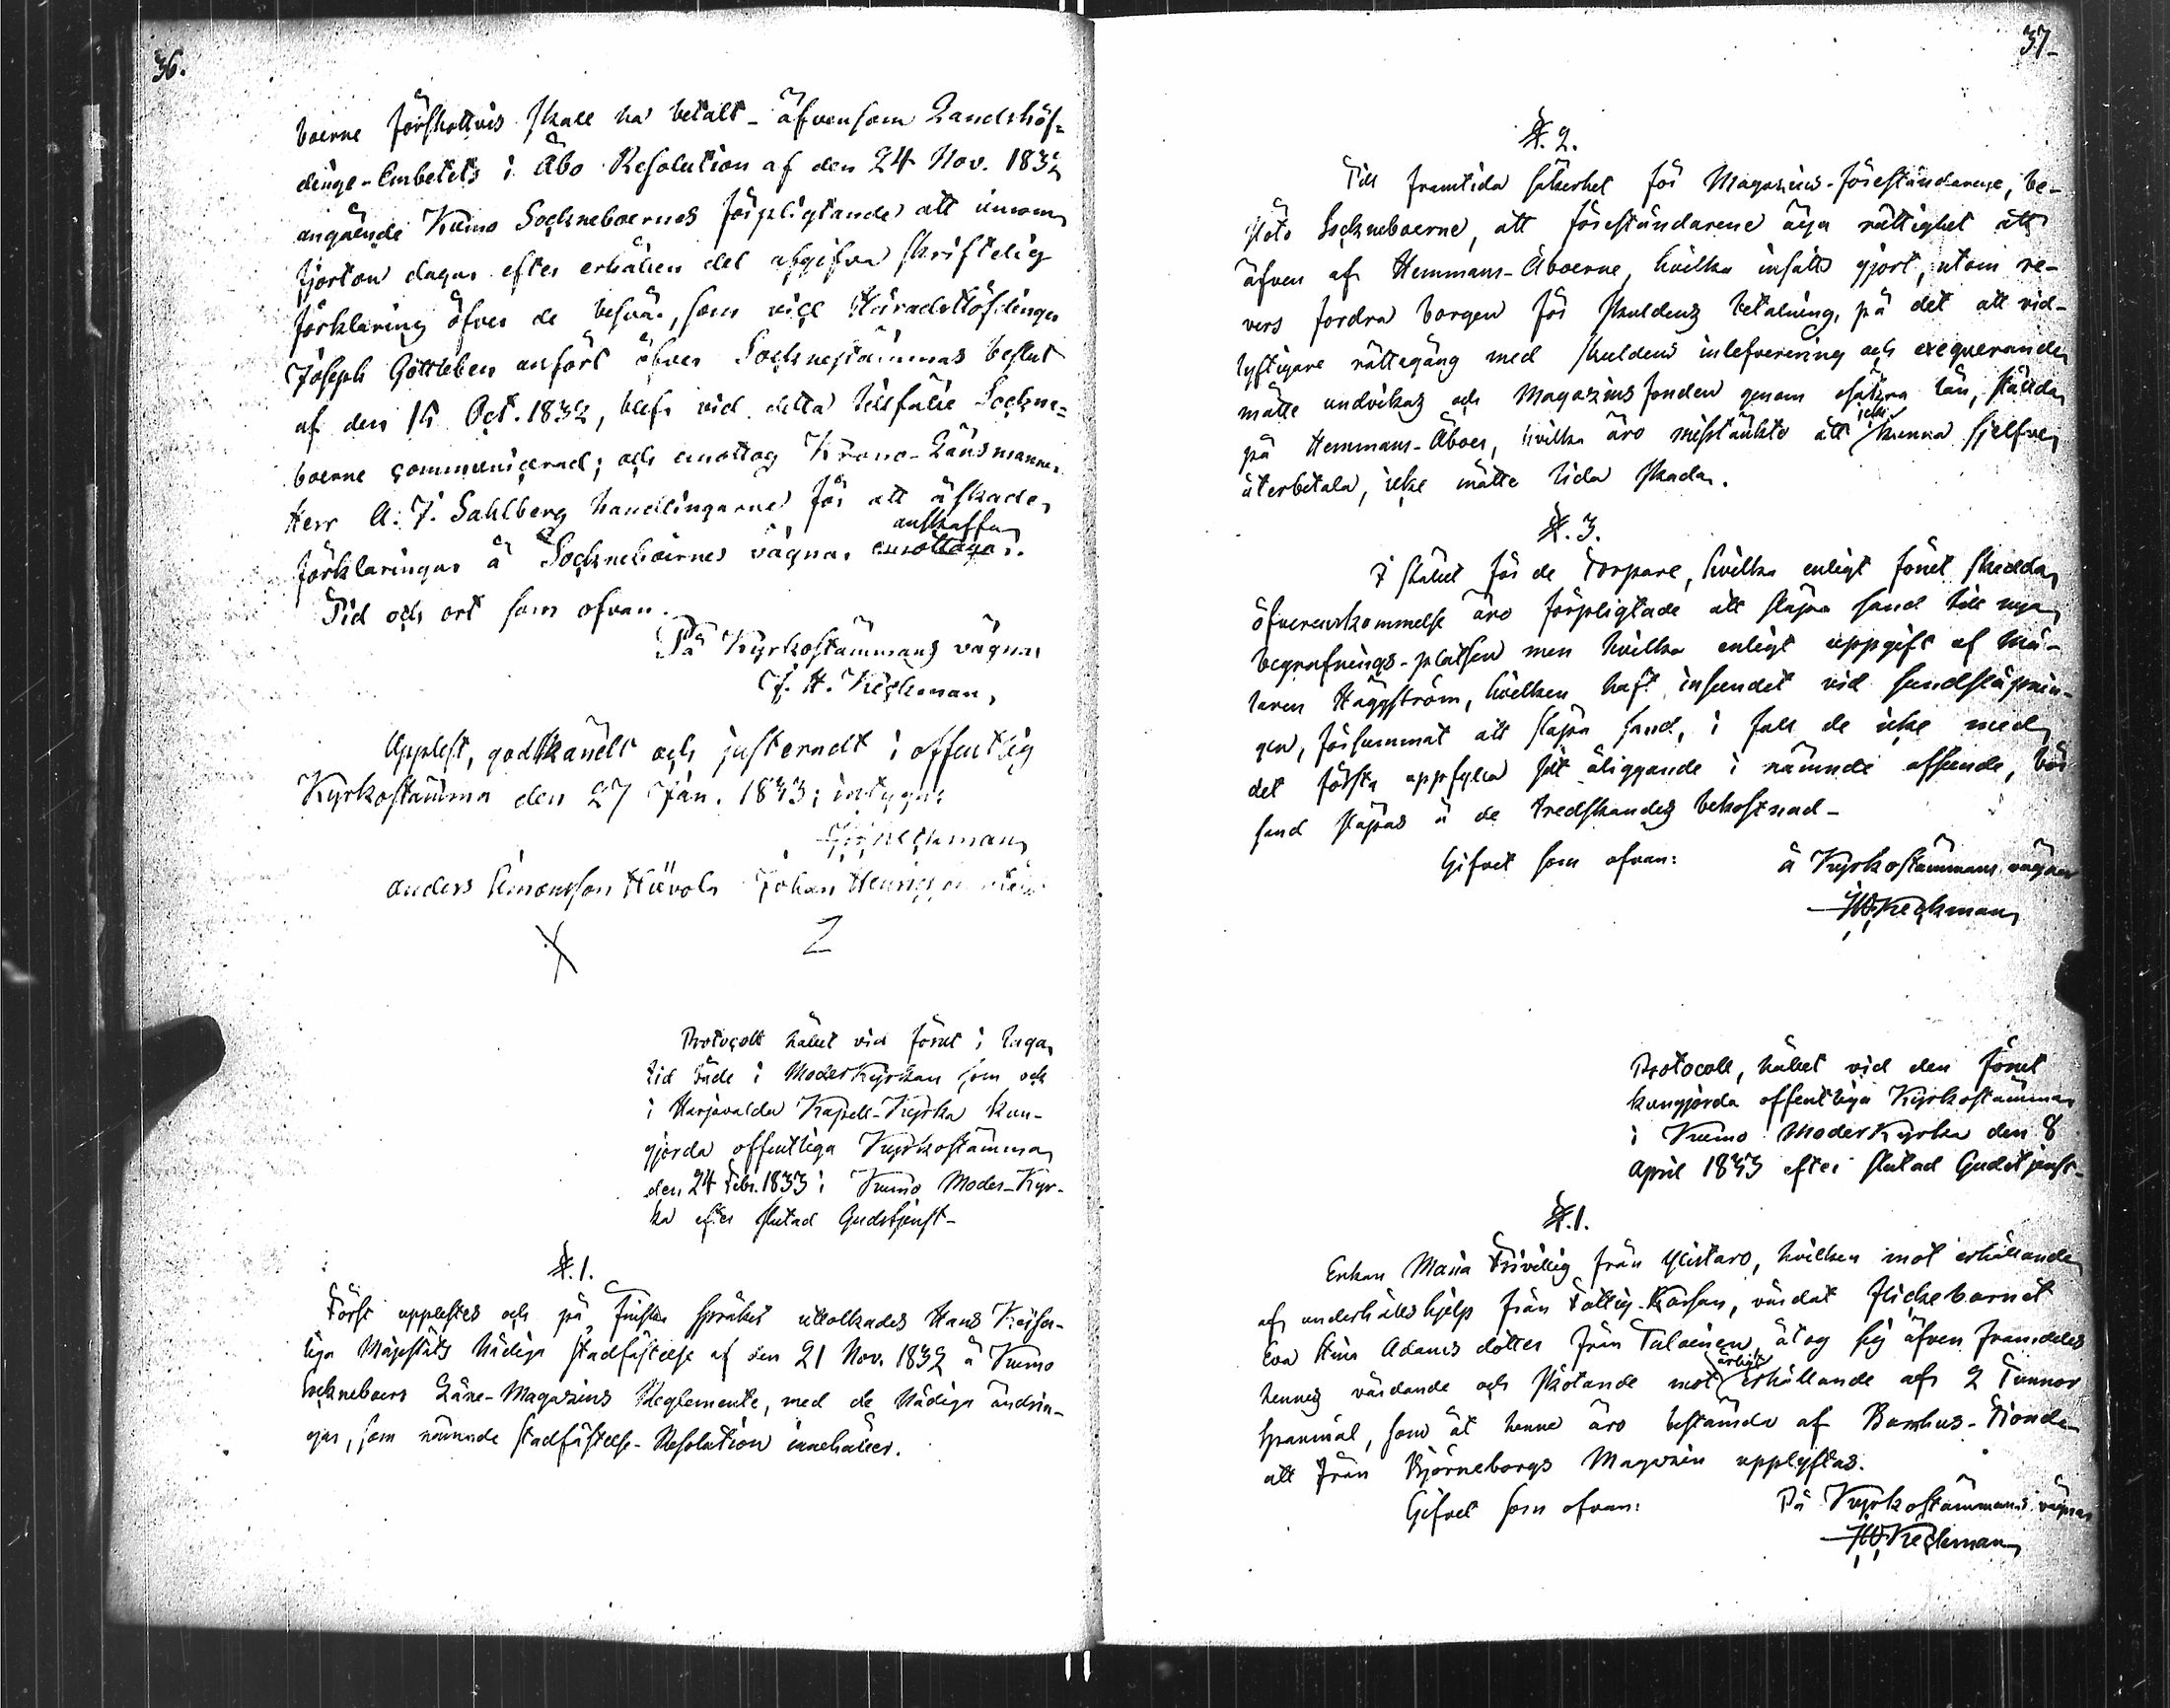 36.
boerne förskottvis skall ha betalt - äfvensom Landshöf=
dinge-Embetets i Åbo Resolution af den 24 Nov. 1832
angående Kumo Sockneboernes förpligtande att innom
fjorton dagar efter erhållen del afgifva skriftelig
förklaring öfver de besvär, som vice Häradshöfdingen
Joseph Gottleben anfört öfver Sockneståmmas beslut
af den 15 Oct. 1832, blef vid detta tillfälle Sockne=
boerne communicerad; och emottog Krono-Länsmannen
Herr A. J. Sahlberg handlingarne för att äskade
anskaffa
förklaringar å Sockneboernes vägnar emottaga.
Tid och ort som ofvan.
På Kyrkostämmans vägnar
J. H. Keckman,
Upplest, godkändt och justerandt i offentlig
Kyrkostämma den 27 Jan. 1833; intyga:
Keckman
anders Simonsson Hiivola Johan Henriksson
Protocoll hållet vid förut i laga
tid både i Moderkyrkan som och
i Harjavalda Kapell-Kyrka kun-
gjorda offentliga Kyrkostämma
den 24 Febr. 1833 i Kumo Moder-Kyr-
ka efter slutad Gudstjenst-
§. 1.
Först upplästes och på finska språket uttolkades Hans Kejser-
liga Majestäts Nådiga stadfästelse af den 21 Nov. 1832 å Kumo
Sockneboers Låne-Magasins Reglemente, med de Nådiga ändrin-
gar, som nämnde stadfästelse-Resolution innehåller.
37
§. 2.
Till framtida säkerhet för Magasins-föreståndarene, be-
slöto Sockneboerne, att föreståndarene äga rättighet att
äfven af Hemmans-Åboerne, hvilka insatts gjort, utom re-
vers fordra borgen för skuldens betalning, på det att vid-
lyftigare rättegång med skuldens inlefverering och exequerande
måtte undvikas och Magasins fonden genom osäkra lån, stälda
icke
på Hemmans-Åboer, hvilka äro misstänkte att kunna sjelfve
återbetala, icke måtte lida skada.
§. 3.
I stället för de Torpare, hvilka enligt förut skedda
öfverenskommelse äro förpligtade att släpa sand till nya
begrafnings-platsen men hvilka enligt uppgift af Må-
laren Häggström, hvilken haft inseendet vid sandsläpnin-
gen, försummat att släpa sand, i fall de icke med
det första uppfylla sit åliggande i nämnde afseende, bör
sand släpas å de tredskandes bekostnad-
Gifvet som ofvan: å Kyrkostämmans vägnar
J H Keckman
Protocoll, hållet vid den förut
kungjorda offentliga Kyrkostämman
i Kumo Moderkyrka den 8
April 1833 efter slutad Gudstjenst-
§. 1.
Enkan Maria Frivillig från Ylistaro, hvilken mot erhållande
af underhålls hjelp från Fattig-Kassan, vårdat flickebarnet
Eva Stina Adams dotter från Tulainen, åtog sig äfven framdeles
årligt
hennes vårdande och skötande mot erhållande af 2 Tunnor
Spanmål, som åt henne äro bestämda af Barnhus-Fonden
att från Björneborgs Magasin upplyftas.
Gifvet som ofvan: På Kyrkostämmans vägnar
J H Keckman